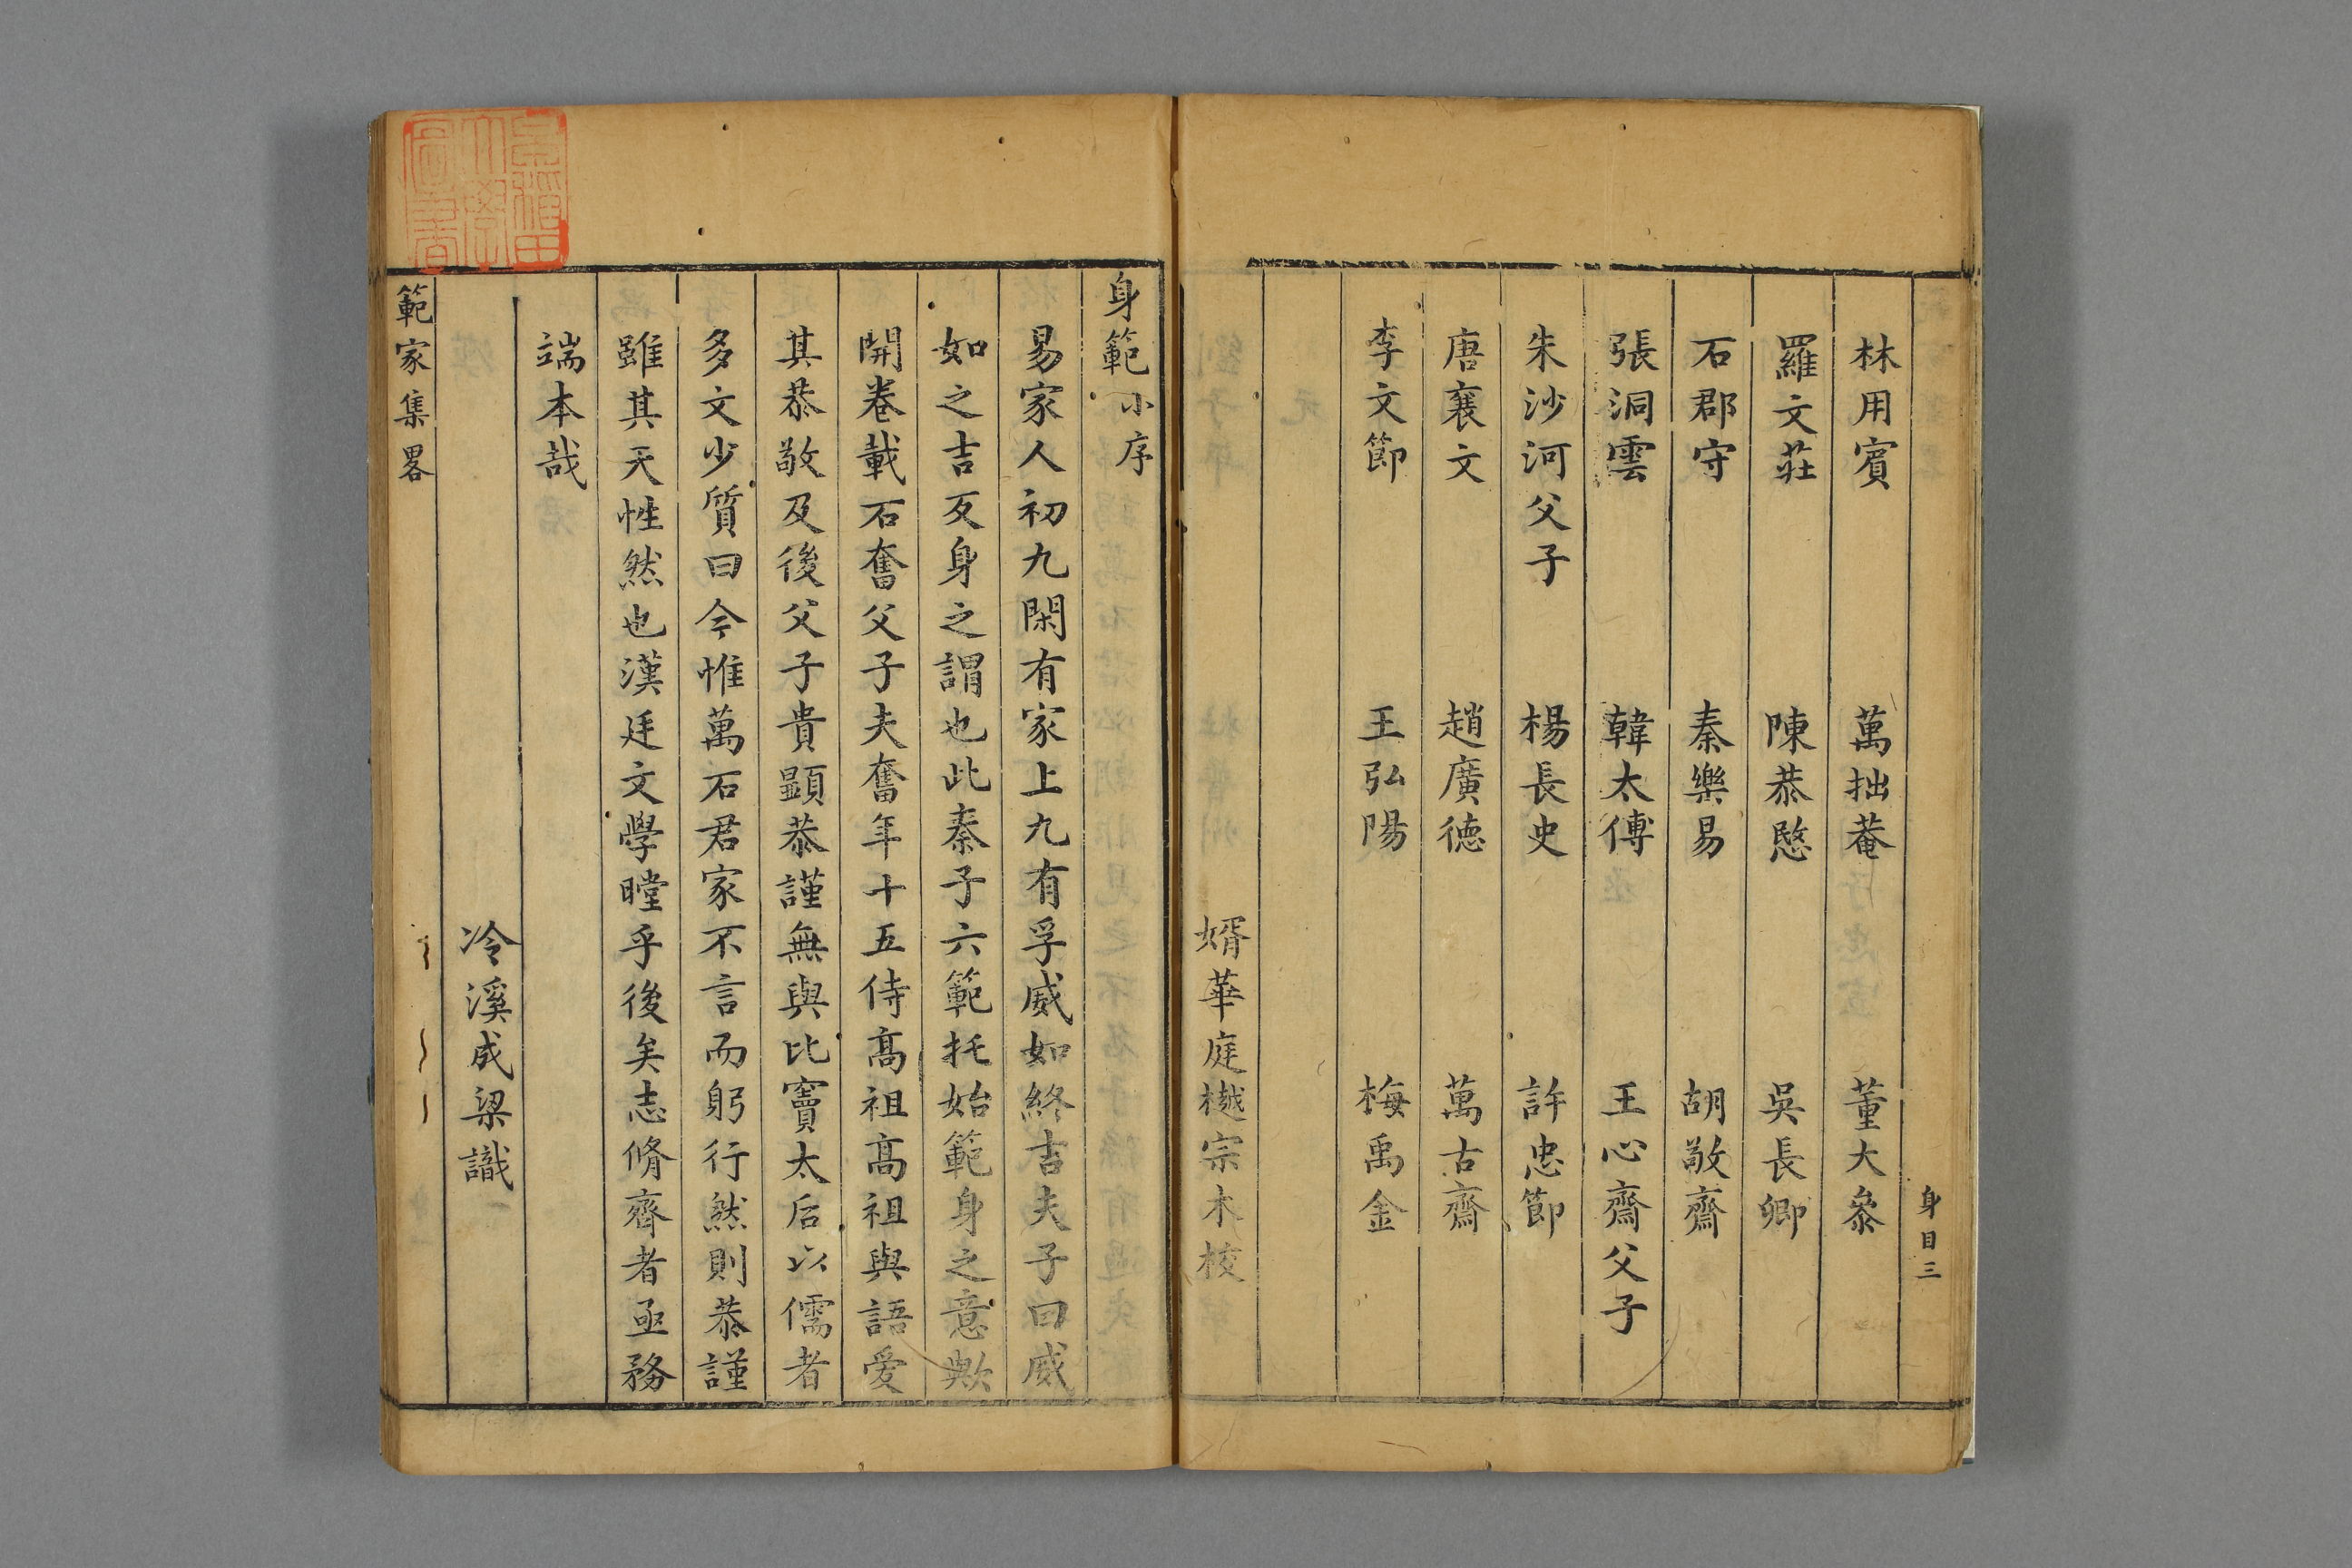 身目三
林用賓　萬拙菴　董大叅
羅文莊　陳恭愍　吳長卿
石郡守　秦樂易　胡敬齋
張洞雲　韓太傅　王心齋父子
朱沙河父子　楊長史　許忠節
唐襄文　趙廣德　萬古齋
李文節　王弘陽　梅禹金
婿華庭樾宗木校
身範小序
易家人初九閑有家上九有孚威如終吉夫子曰威
如之吉反身之謂也此秦子六範托始範身之意歟
開卷載石奮父子夫奮年十五侍高祖高祖與語愛
其恭敬及後父子貴顯恭謹無與比竇太后以儒者
多文少質曰今惟萬石君家不言而躬行然則恭謹
雖其天性然也漢廷文學瞠乎後矣志脩齊者亟務
端本哉
冷溪成梁識
範家集畧